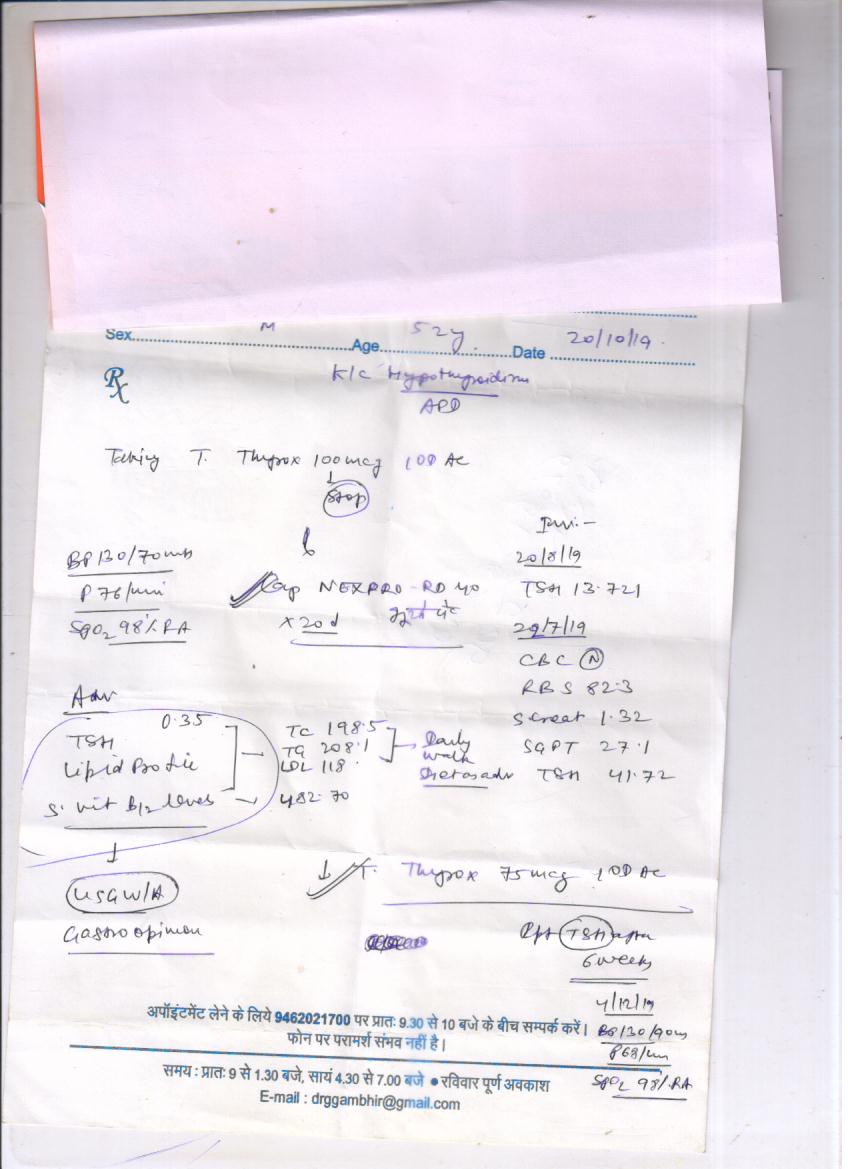 Sex M Age 52y Date 20/10/19.
Rx
K/C Hypothyroidism
APD
Taking T. Thyrox 100 mcg 1 OD AC
Stop
BP 130/70
P 76/min
SpO2 98% RA
Cap NEXPRO-RD 40
x 20 d
Inv:-
20/8/19
TSH 13.721
29/7/19
CBC N
RBS 82.3
S creat 1.32
SGPT 27.1
TSH 41.72
Adv
TSH 0.35
Lipid Profile
S. Vit B12 levels → 482.70
TC 198.5
TG 208.1
LDL 118
Daily
walk
Diet as adv
↓
USG W/A
Gastro opinion
↓ T. Thyrox 75 mcg 1 OD AC
Rpt TSH after
6 weeks
4/12/19
BP 130/90
P 68/min
SpO2 98% RA
अपॉइंटमेंट लेने के लिये 9462021700 पर प्रातः 9.30 से 10 बजे के बीच सम्पर्क करें।
फोन पर परामर्श संभव नहीं है।
समय : प्रातः 9 से 1.30 बजे, सायं 4.30 से 7.00 बजे ● रविवार पूर्ण अवकाश
E-mail : drggambhir@gmail.com